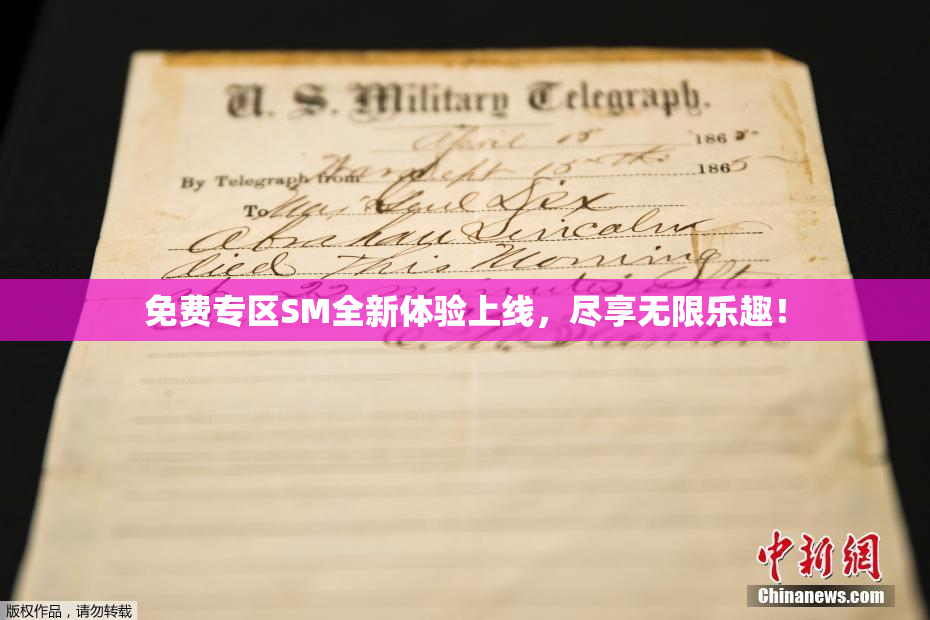 U. S. Military Telegraph.
April 15 1865
By Telegraph from Wash Sept 15th 1865
To Maj Genl Dix
Abraham Lincoln
died This Morning
at 22 minutes after
免费专区SM全新体验上线，尽享无限乐趣！
E. M. Stanton
中新网
Chinanews.com
版权作品，请勿转载